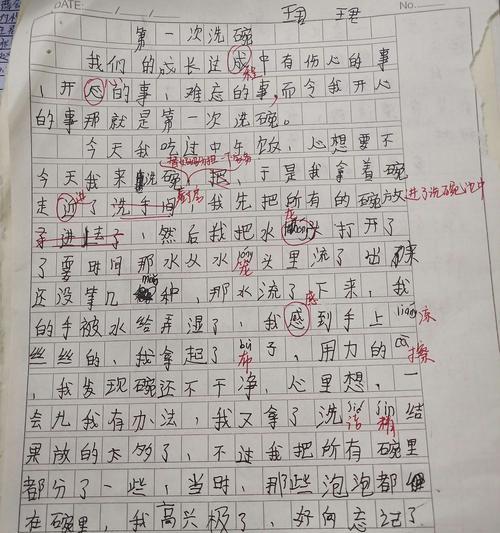 DATE / / NO.
王君 王君
第一次洗碗
我们的成长过成中有伤心的事
程
、开心的事、难忘的事,而令我开心
的事那就是第一次洗碗。
今天我吃过中午饭,心想要不
今天我来洗碗把,于是我拿着碗
吧
走进了洗手间,我先把所有的碗放
进了洗碗池中
手进去了,然后我把水头打开了
龙
了要时间那水从水lóng头里流了出来
笼
还没等几秒种,那水流了下来,我
的手被水给弄湿了,我感到手上liáng
感 凉
丝丝的,我拿起了bù子,用力的cā
布 擦
,我发现碗还不干净,心里想,一
会九我有办法,我又拿了洗jié jīn结
洁 精
果放的太多了,不过我把所有碗里
都分了一些,当时,那些泡泡都
在碗里,我高兴极了,好向忘记了